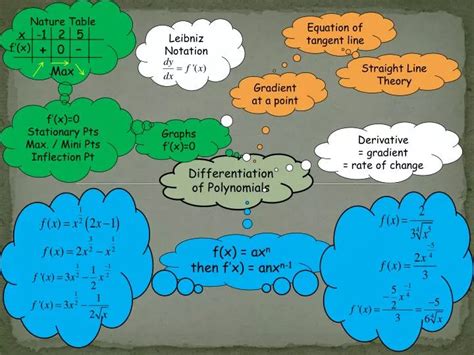 Nature Table
x -1 2 5
f'(x) + 0 -
Max
Leibniz
Notation
dy/dx = f'(x)
Equation of
tangent line
Straight Line
Theory
Gradient
at a point
f'(x)=0
Stationary Pts
Max. / Mini Pts
Inflection Pt
Graphs
f'(x)=0
Derivative
= gradient
= rate of change
Differentiation
of Polynomials
f(x) = axⁿ
then f'x) = anxⁿ⁻¹
f(x) = x^(1/2)(2x−1)
f(x) = 2x^(3/2) − x^(1/2)
f'(x) = 3x^(1/2) − 1/2 x^(-1/2)
f'(x) = 3x^(1/2) − 1/(2√x)
f(x) =
f(x) =
f'(x) =